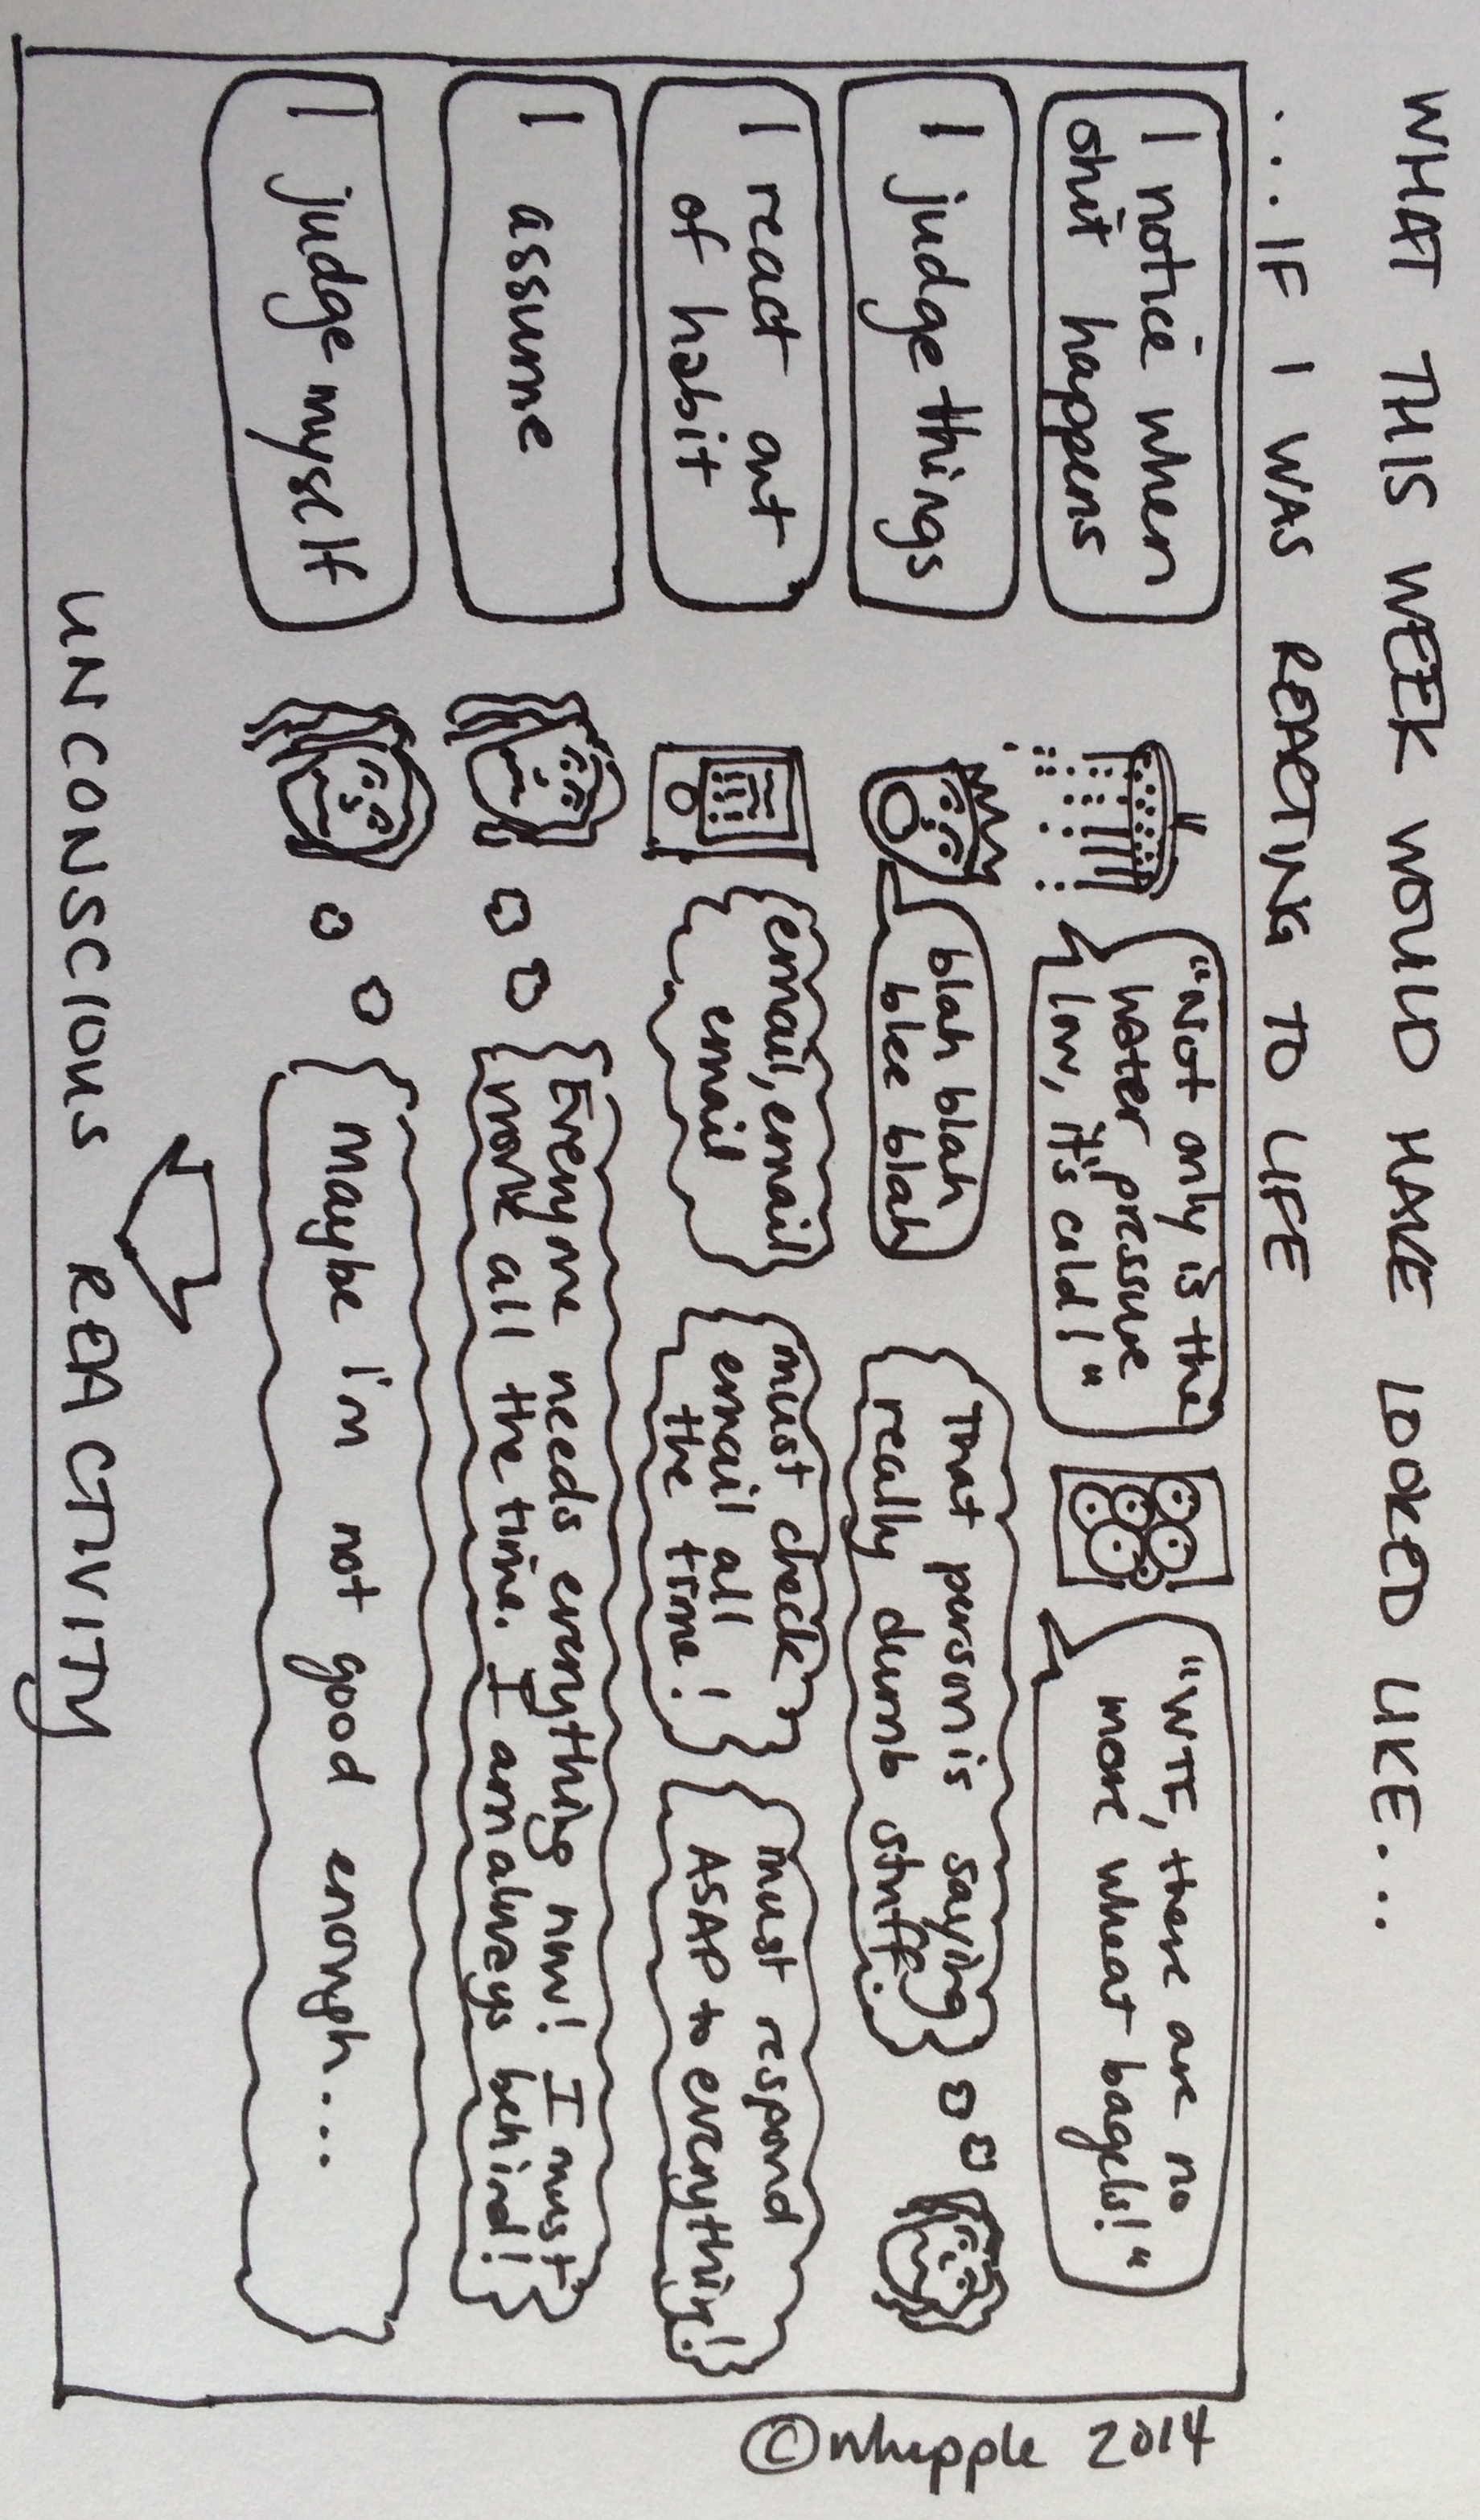 WHAT THIS WEEK WOULD HAVE LOOKED LIKE...
...IF I WAS REACTING TO LIFE
I notice when
shit happens
"Not only is the
water pressure
low, it's cold!"
"WTF, there are no
more wheat bagels!"
I judge things
blah blah
blee blah
That person is saying
really dumb stuff...
I react out
of habit
email, email
email
must check
email all
the time!
must respond
ASAP to everything!
I assume
Everyone needs everything now! I must
work all the time. I am always behind!
I judge myself
maybe I'm not good enough...
UNCONSCIOUS REACTIVITY
©whipple 2014